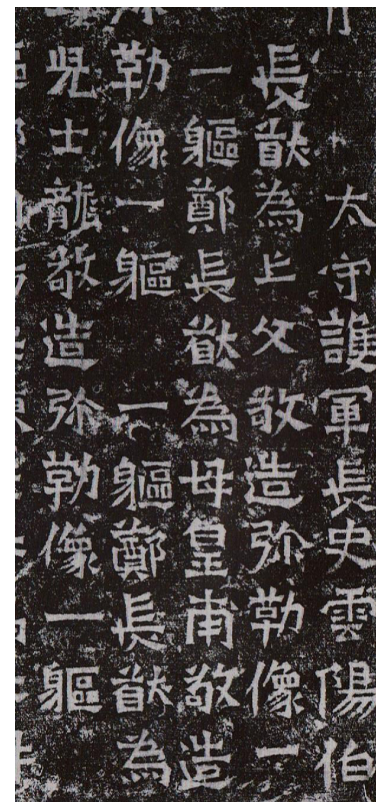 太守護軍長史雲陽伯
長猷為亡父敬造弥勒像一
一軀鄭長猷為母皇甫敬造
勒像一軀 一軀鄭長猷為
児士龍敬造弥勒像一軀